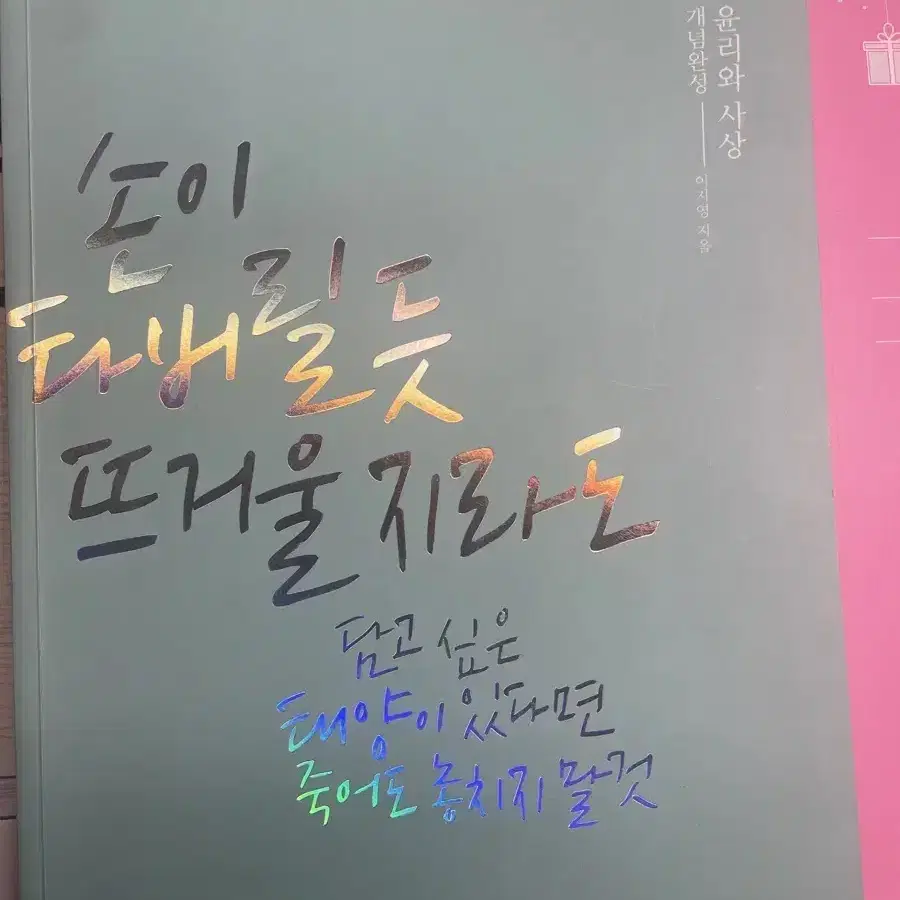 윤리와 사상
개념완성
이지영 지음
손이
타버릴 듯
뜨거울지라도
담고 싶은
태양이 있다면
죽어도 놓치지 말 것